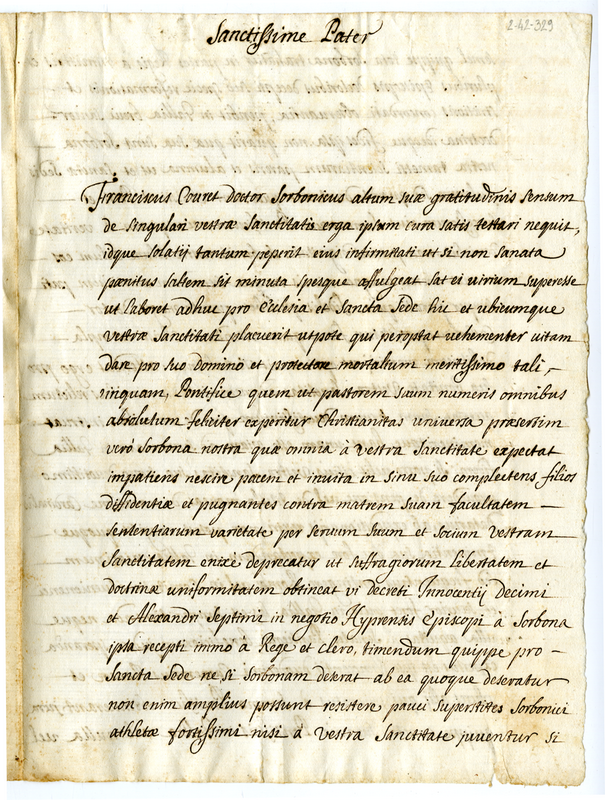 Sanctissime Pater
2-42-329
Franciscus Couret Doctor Sorbonicus altum suæ gratitudinis sensum
de singulari vestræ Sanctitatis erga ipsum cura satis testari nequit,
idque solatij tantum peperit eius infirmitati ut si non sanata
pænitus saltem sit minuta spesque affulgeat sat ei virium superesse
ut laboret adhuc pro Ecclesia et Sancta Sede hic et ubicumque
vestræ Sanctitati placuerit utpote qui peroptat vehementer vitam
dare pro suo domino et protectore mortalium meritissimo tali,
inquam, Pontifice quem ut pastorem suum numeris omnibus
absolutum feliciter experitur Christianitas universa præsertim
verò Sorbona nostra quæ omnia à vestra Sanctitate expectat
impatiens nescire pacem et invita in sinu suo complectens filios
diffidentiæ et pugnantes contra matrem suam facultatem
sententiarum varietate per servum suum et socium vestram
Sanctitatem enixè deprecatur ut suffragiorum libertatem et
doctrinæ uniformitatem obtineat vi decreti Innocentij decimi
et Alexandri Septimi in negotio Hyprensis Episcopi à Sorbona
ipsa recepti immò à Rege et clero, timendum quippe pro
Sancta Sede ne si Sorbonam deserat ab ea quoque deseratur
non enim amplius possunt resistere pauci superstites Sorbonici
athletæ fortissimi nisi à vestra Sanctitate juventur si